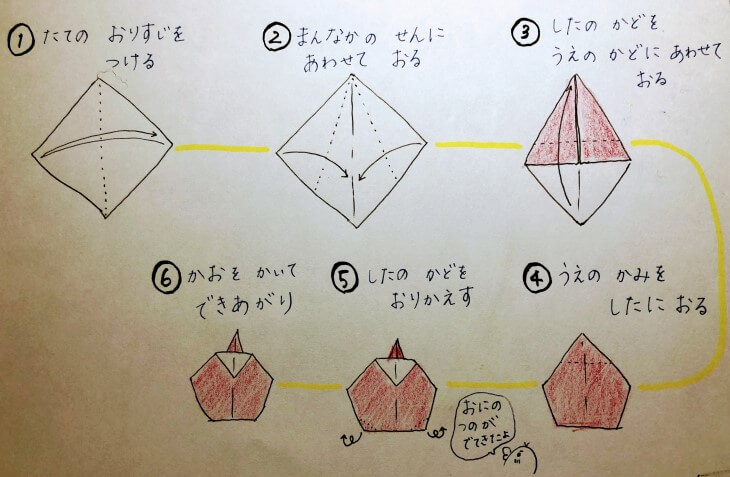 ① たての おりすじを
つける
② まんなかの せんに
あわせて おる
③ したの かどを
うえの かどに あわせて
おる
④ うえの かみを
したに おる
⑤ したの かどを
おりかえす
おにの
つのが
でてきたよ
⑥ かおを かいて
できあがり